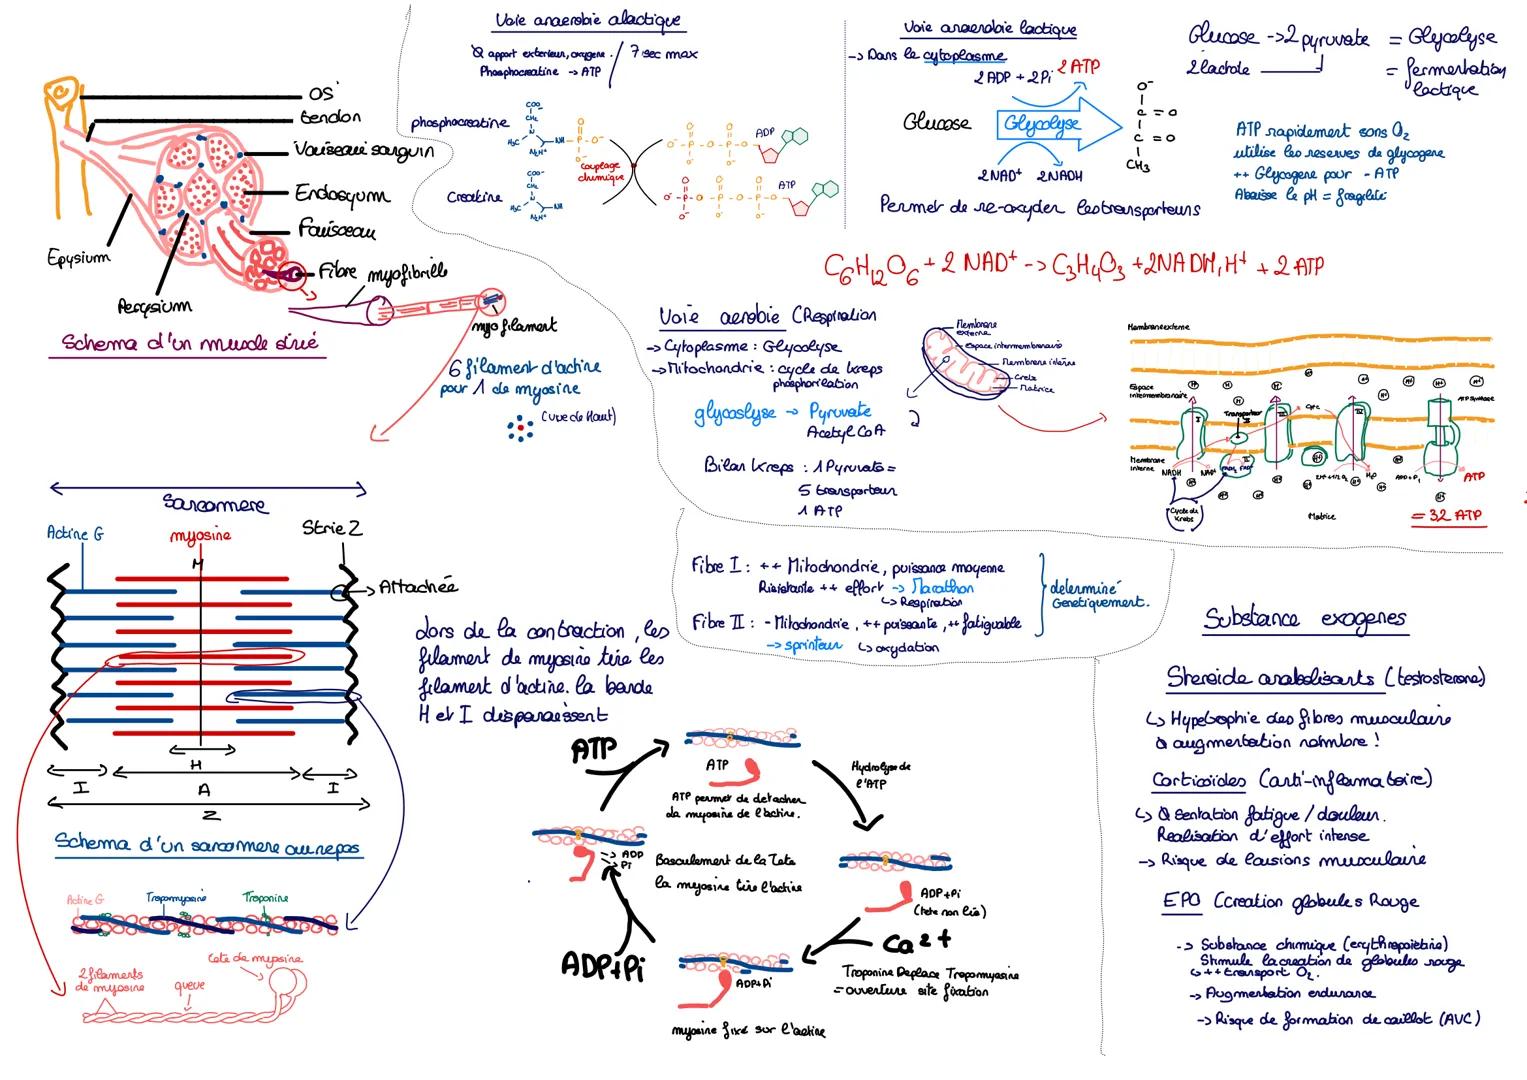 os
tendon
Vaisseau sanguin
Endosyum
Faisseau
Fibre
myofibrille
Epysium
Perysium
myofilament
Schema d'un muscle strié
6 filament d'actine
pour 1 de myosine
(vue de Haut)
Sarcomere
Actine G
myosine
Strie Z
M
Attachée
H
I
A
I
Z
Schema d'un sarcomere au repos
Actine G
Tropomyosine
Troponine
2 filaments
de myosine
queue
tete de myosine
Lors de la contraction, les
filament de myosine tire les
filament d'actine. la bande
H et I disparaissent
Voie anaerobie alactique
Ø apport exterieur, oxygene. / 7 sec max
Phosphocreatine -> ATP
phosphocreatine
Creatine
couplage
chimique
ADP
ATP
Voie anaerobie lactique
-> Dans le cytoplasme
2 ADP + 2Pi
2 ATP
Glucose
Glycolyse
2NAD+
2NADH
O-
C = O
C = O
CH3
Permet de re-oxyder les transporteurs
Glucose -> 2 pyruvate = Glycolyse
2 lactate
= fermentation
lactique
ATP rapidement sans O2
utilise les reserves de glycogene
++ Glycogene pour - ATP
Abaisse le pH = fragilité
C6H12O6 + 2 NAD+ -> C3H4O3 + 2NADH,H+ + 2 ATP
Voie aerobie (Respiration
-> Cytoplasme : Glycolyse
-> Mitochondrie : cycle de kreps
phosphorilation
glycoslyse -> Pyruvate
Acetyl CoA
2
Bilan Kreps : 1 Pyruvate =
5 transporteur
1 ATP
Membrane
externe
Espace intermembranaire
Membrane interne
Crete
Matrice
Membrane externe
Espace
intermembranaire
Transporteur
Cytc
ATP Synthase
Membrane
interne
NADH
NAD+
I
II
III
IV
H2O
ADP + Pi
ATP
Cycle de
Krebs
Matrice
= 32 ATP
Fibre I : ++ Mitochondrie, puissance moyenne
Résistante ++ effort -> Marathon
↳ Respiration
Fibre II : - Mitochondrie, ++ puissante, ++ fatiguable
-> sprinteur ↳ oxydation
determiné
Genetiquement.
ATP
ATP
ATP permet de detacher
la myosine de l'actine.
Hydrolyse de
l'ATP
ADP+Pi
(tete non liée)
Ca2+
Troponine Deplace Tropomyosine
= ouverture site fixation
ADP+Pi
myosine fixé sur l'actine
ADP+Pi
ADP
Pi
Basculement de la Tete
la myosine tire l'actine
Substance exogenes
Steroide anabolisants (testosterone)
↳ Hypetrophie des fibres musculaire
Ø augmentation nombre !
Corticoïdes (anti-inflamatoire)
↳ Ø sentation fatigue / douleur.
Realisation d'effort intense
-> Risque de lausions musculaire
EPO (creation globules Rouge
-> Substance chimique (erythropoietine)
Stimule la creation de globules rouge
↳ ++ transport O2.
-> Augmentation endurance
-> Risque de formation de caillot (AVC)